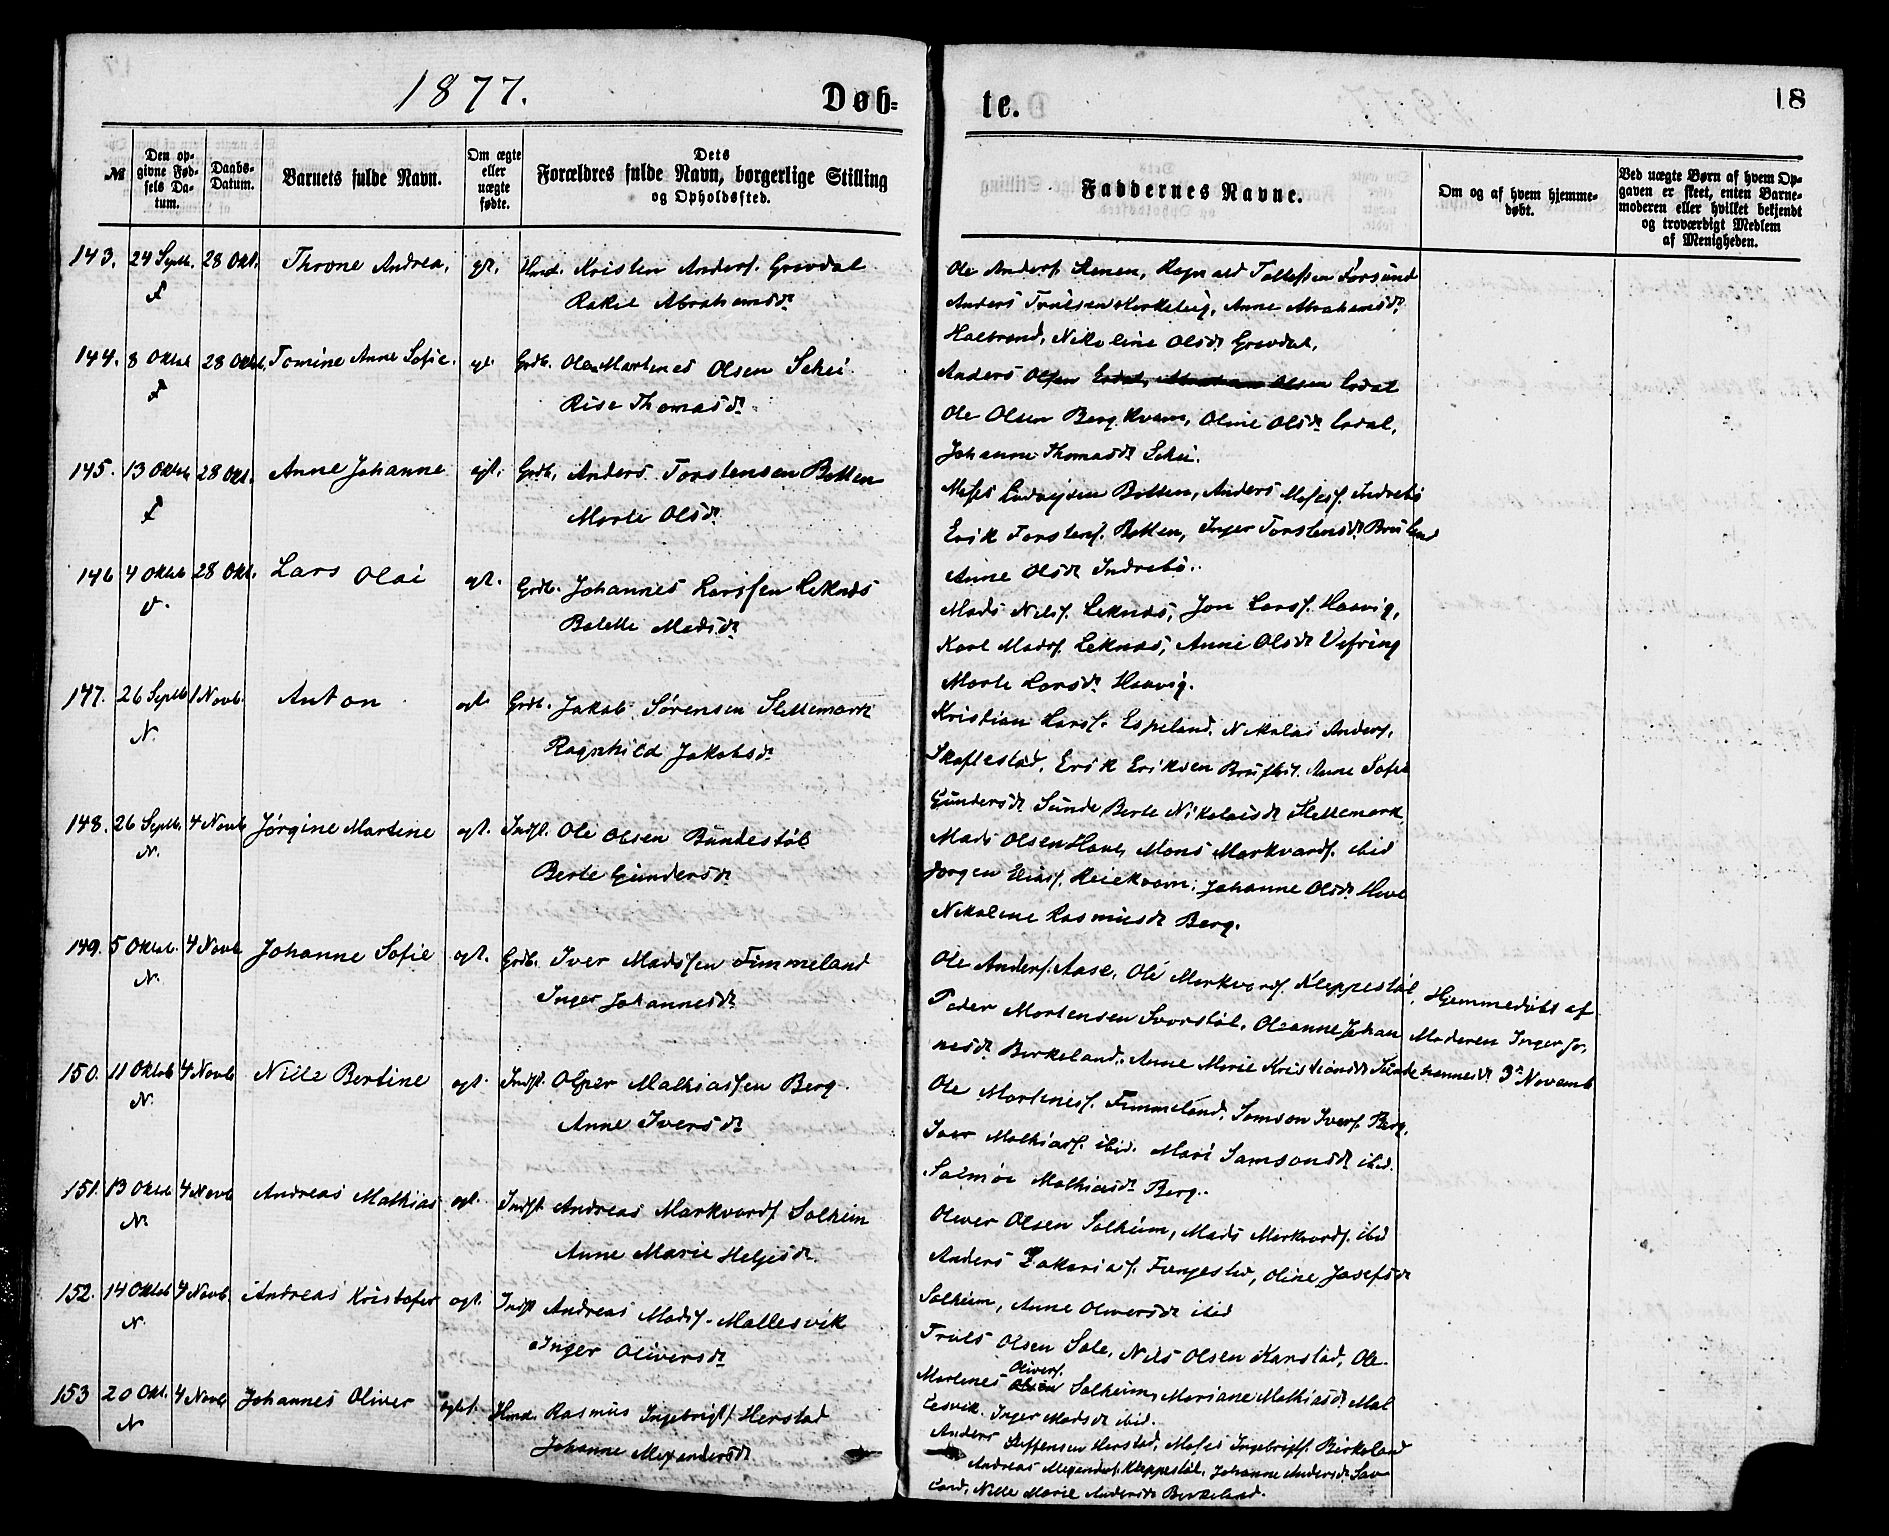 1877.
Døb-
te.
18
№
Den opgivne Fødsels Datum.
Daabs-Datum.
Barnets fulde Navn.
Om ægte eller uægte fødte.
Dets Forældres fulde Navn, borgerlige Stilling og Opholdssted.
Faddernes Navne.
Om og af hvem hjemmedøbt.
Ved uægte Børn af hvem Opgaven er skeet, enten Barnemoderen eller hvilket bekjendt og troværdigt Medlem af Menigheden.
143. 24 Septb. 28 Okt. Throne Andrea, egt. Hmd. Kristen Anders. Grovdal
Rakel Abrahamsdr
Ole Anders. Stenen, Ragnald Tollefsen Førsund
Anders Trulsen Kirketeig, Anne Abrahamsdr
Halbrend, Nikoline Olsdr Grovdal.
144. 8 Oktob 28 Oktob. Tomine Anne Sofie. egt Grdb. Ole Martenes Olsen Schei
Rise Thomasdr
Anders Olsen Erdal
Ole Olsen Bergkvam, Oline Olsdr Erdal,
Johanne Thomasdr Schei.
145. 13 Oktob 28 Okt. Anne Johanne egt. Grdb. Anders Torstensen Botten
Marte Olsdr
Moses Ludvigsen Botten, Anders Moses. Indrebø
Erik Torstens. Botten, Inger Torstensdr Bruland
Anne Olsdr Indrebø.
146 4 Oktob 28 Okt. Lars Olai egt. Grdb. Johannes Larssen Leknes
Bolette Madsdr
Mads Nils. Leknes, Jon Lars. Haavig,
Karl Mads. Leknes, Anne Olsdr Vefring
Marte Larsdr Haavig.
147. 26 Septb 1 Novb. Anton egt. Grdb. Jakob Sørensen Slettemark
Ragnhild Jakobsdr
Kristian Lars. Espeland, Nikolai Anders.
Skaflestad, Erik Eriksen Brufløt, Anne Sofie
Gundersdr Sunde Berte Nikolaisdr Slettemark
148. 26 Septb. 4 Novb Jørgine Martine egt. Indst. Ole Olsen Bundestøl
Berte Gundersdr
Mads Olsen Hove, Mons Markvards. ibid
Jørgen Elias. Reiekvam, Johanne Olsdr Hove
Nikoline Rasmusdr Berg.
149. 5 Oktob. 4 Novb Johanne Sofie egt. Grdb. Iver Madssen Fimmeland
Inger Johannesdr
Ole Anders. Aase, Ole Markvards. Kleppestøl,
Peder Mortensen Svorstøl, Oleanne Johan
nesdr Birkeland, Anne Marie Kristiansdr Sunde
Hjemmedøbt af
Moderen Inger Jo,
hannesdr 3die Novemb
150. 11 Oktob 4 Novb Nille Bertine egt. Indst. Asper Mathiassen Berg.
Anne Iversdr
Ole Martenes. Fimmeland, Samson Ivers. Berg,
Iver Mathias. ibid. Mari Samsonsdr ibid.
Salmøe Mathiasdr Berg.
151. 13 Oktob 4 Novb Andreas Mathias egt. Indst. Andreas Markvards. Solheim
Anne Marie Helgesdr.
Oliver Olsen Solheim, Mads Markvards. ibid
Anders Zakarias. Fungestad, Oline Josefsdr
Solheim, Anne Oliversdr ibid
152. 14 Oktob 4 Novb. Andreas Kristofer egt. Indst Andreas Mads. Mallesvik
Inger Oliversdr
Truls Olsen Sole, Nils Olsen Karstad, Ole
Martenes Olivers. Solheim, Mariane Mathiasdr Mal
lesvik. Inger Madsdr ibid.
153 20 Okt. 4 Novb Johannes Oliver egte. Hmd. Rasmus Ingebrigts. Herstad
Johanne Alexandersdr
Anders Steffensen Herstad, Moses Ingebrigts. Birkeland
Andreas Alexanders. Kleppestøl, Johanne Andersdr Sav
land, Nille Marie Andersdr Birkeland.